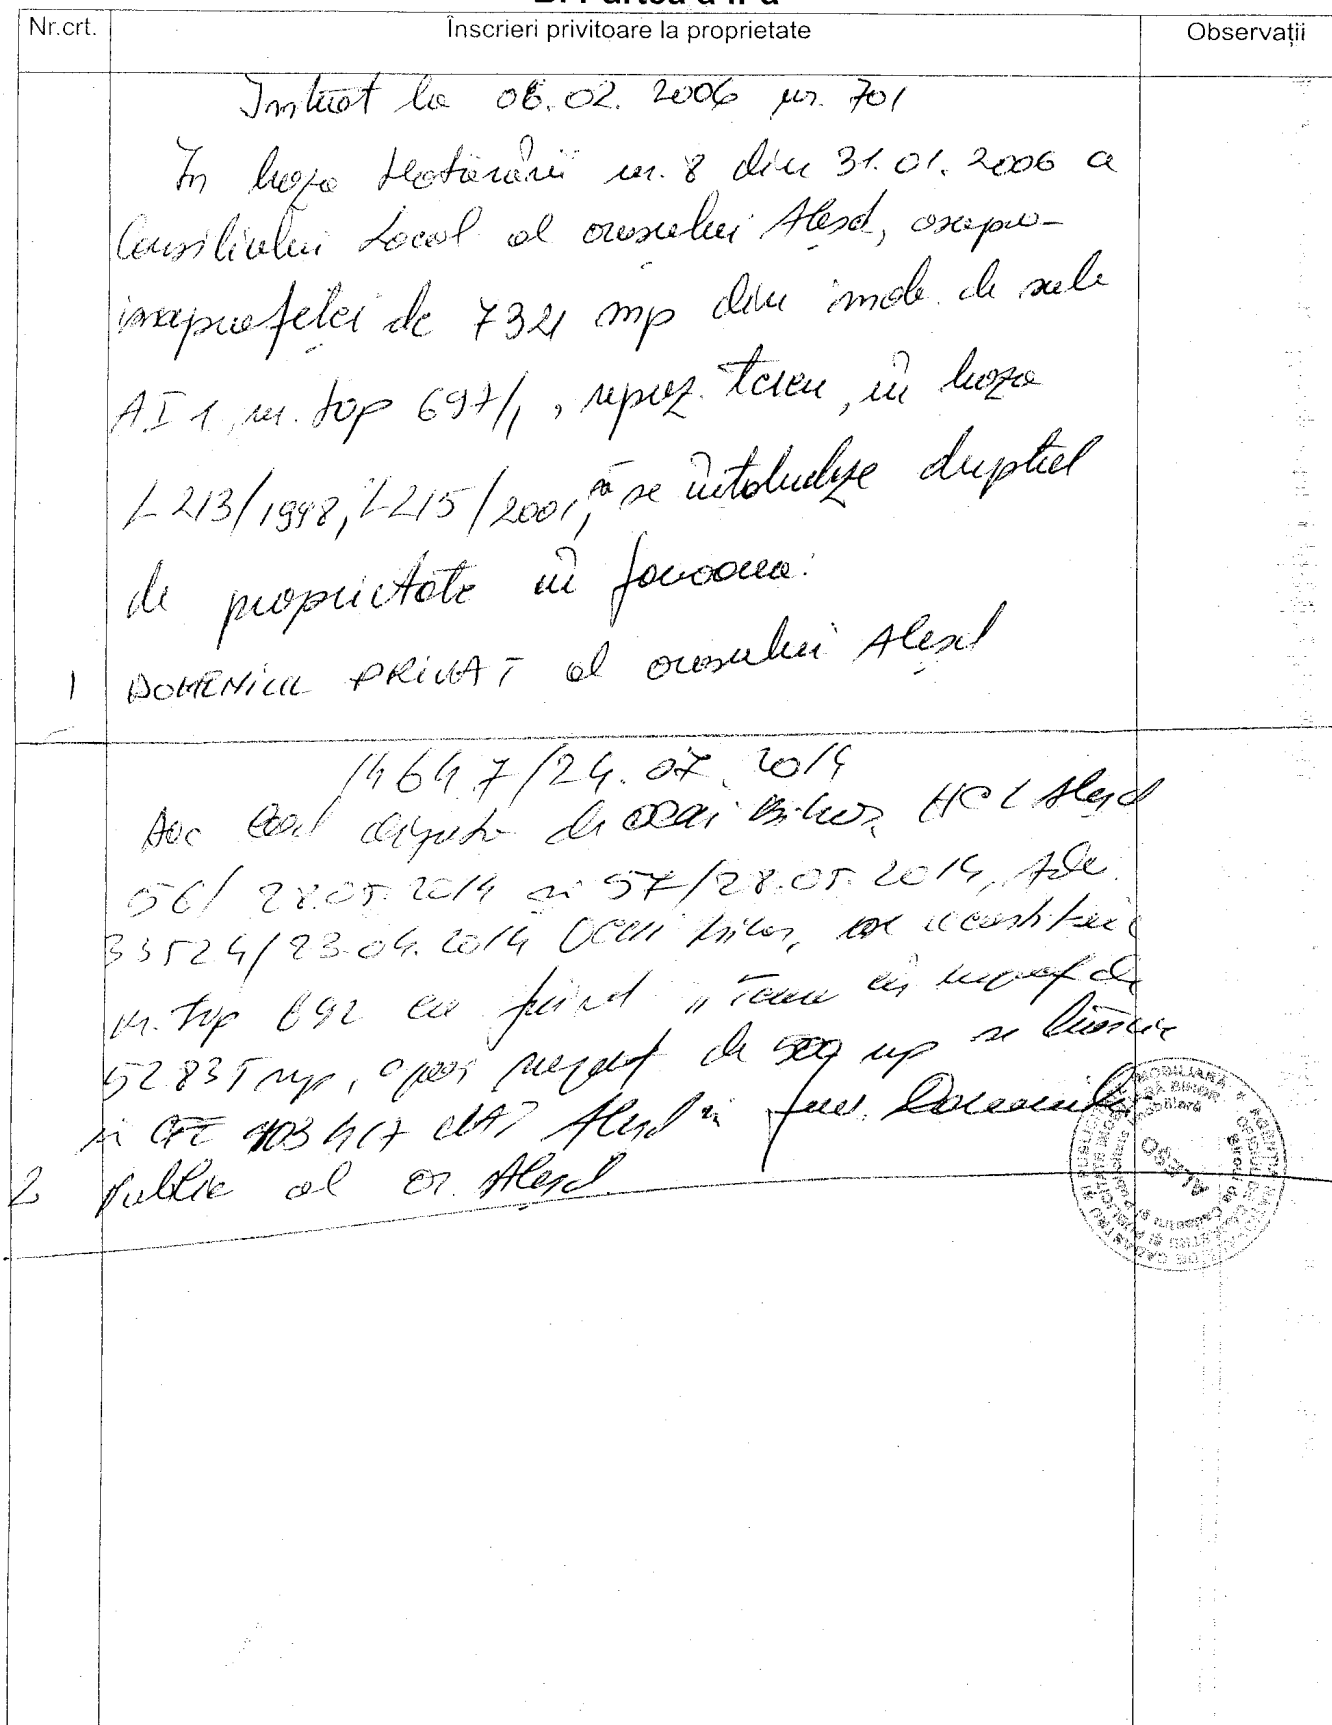 B. Partea a II-a
Nr.crt.
Înscrieri privitoare la proprietate
Observații
Intrat la 06.02. 2006 nr. 701
În baza Hotărârii nr. 8 din 31.01.2006 a
Consiliului Local al orașului Aleșd, asupra
suprafeței de 7321 mp din imob. de sub
A I 1, nr. top 697/1, reprez. teren, în baza
L 213/1998, L 215/2001, se intabulează dreptul
de proprietate în favoarea:
1 DOMENIUL PRIVAT al orașului Aleșd
14647/24.07.2014
Doc cad de OCPI Bihor, HCL Aleșd
56/ 28.05.2014 și 57/28.05.2014, Ade.
33524/23.04.2014 OCPI Bihor,
nr. top 692 ca fiind "Teren
52835 mp, apoi de 509 mp se
în CF 103417 Aleșd în fav. Domeniul
2 Public al or. Aleșd
ALEȘD